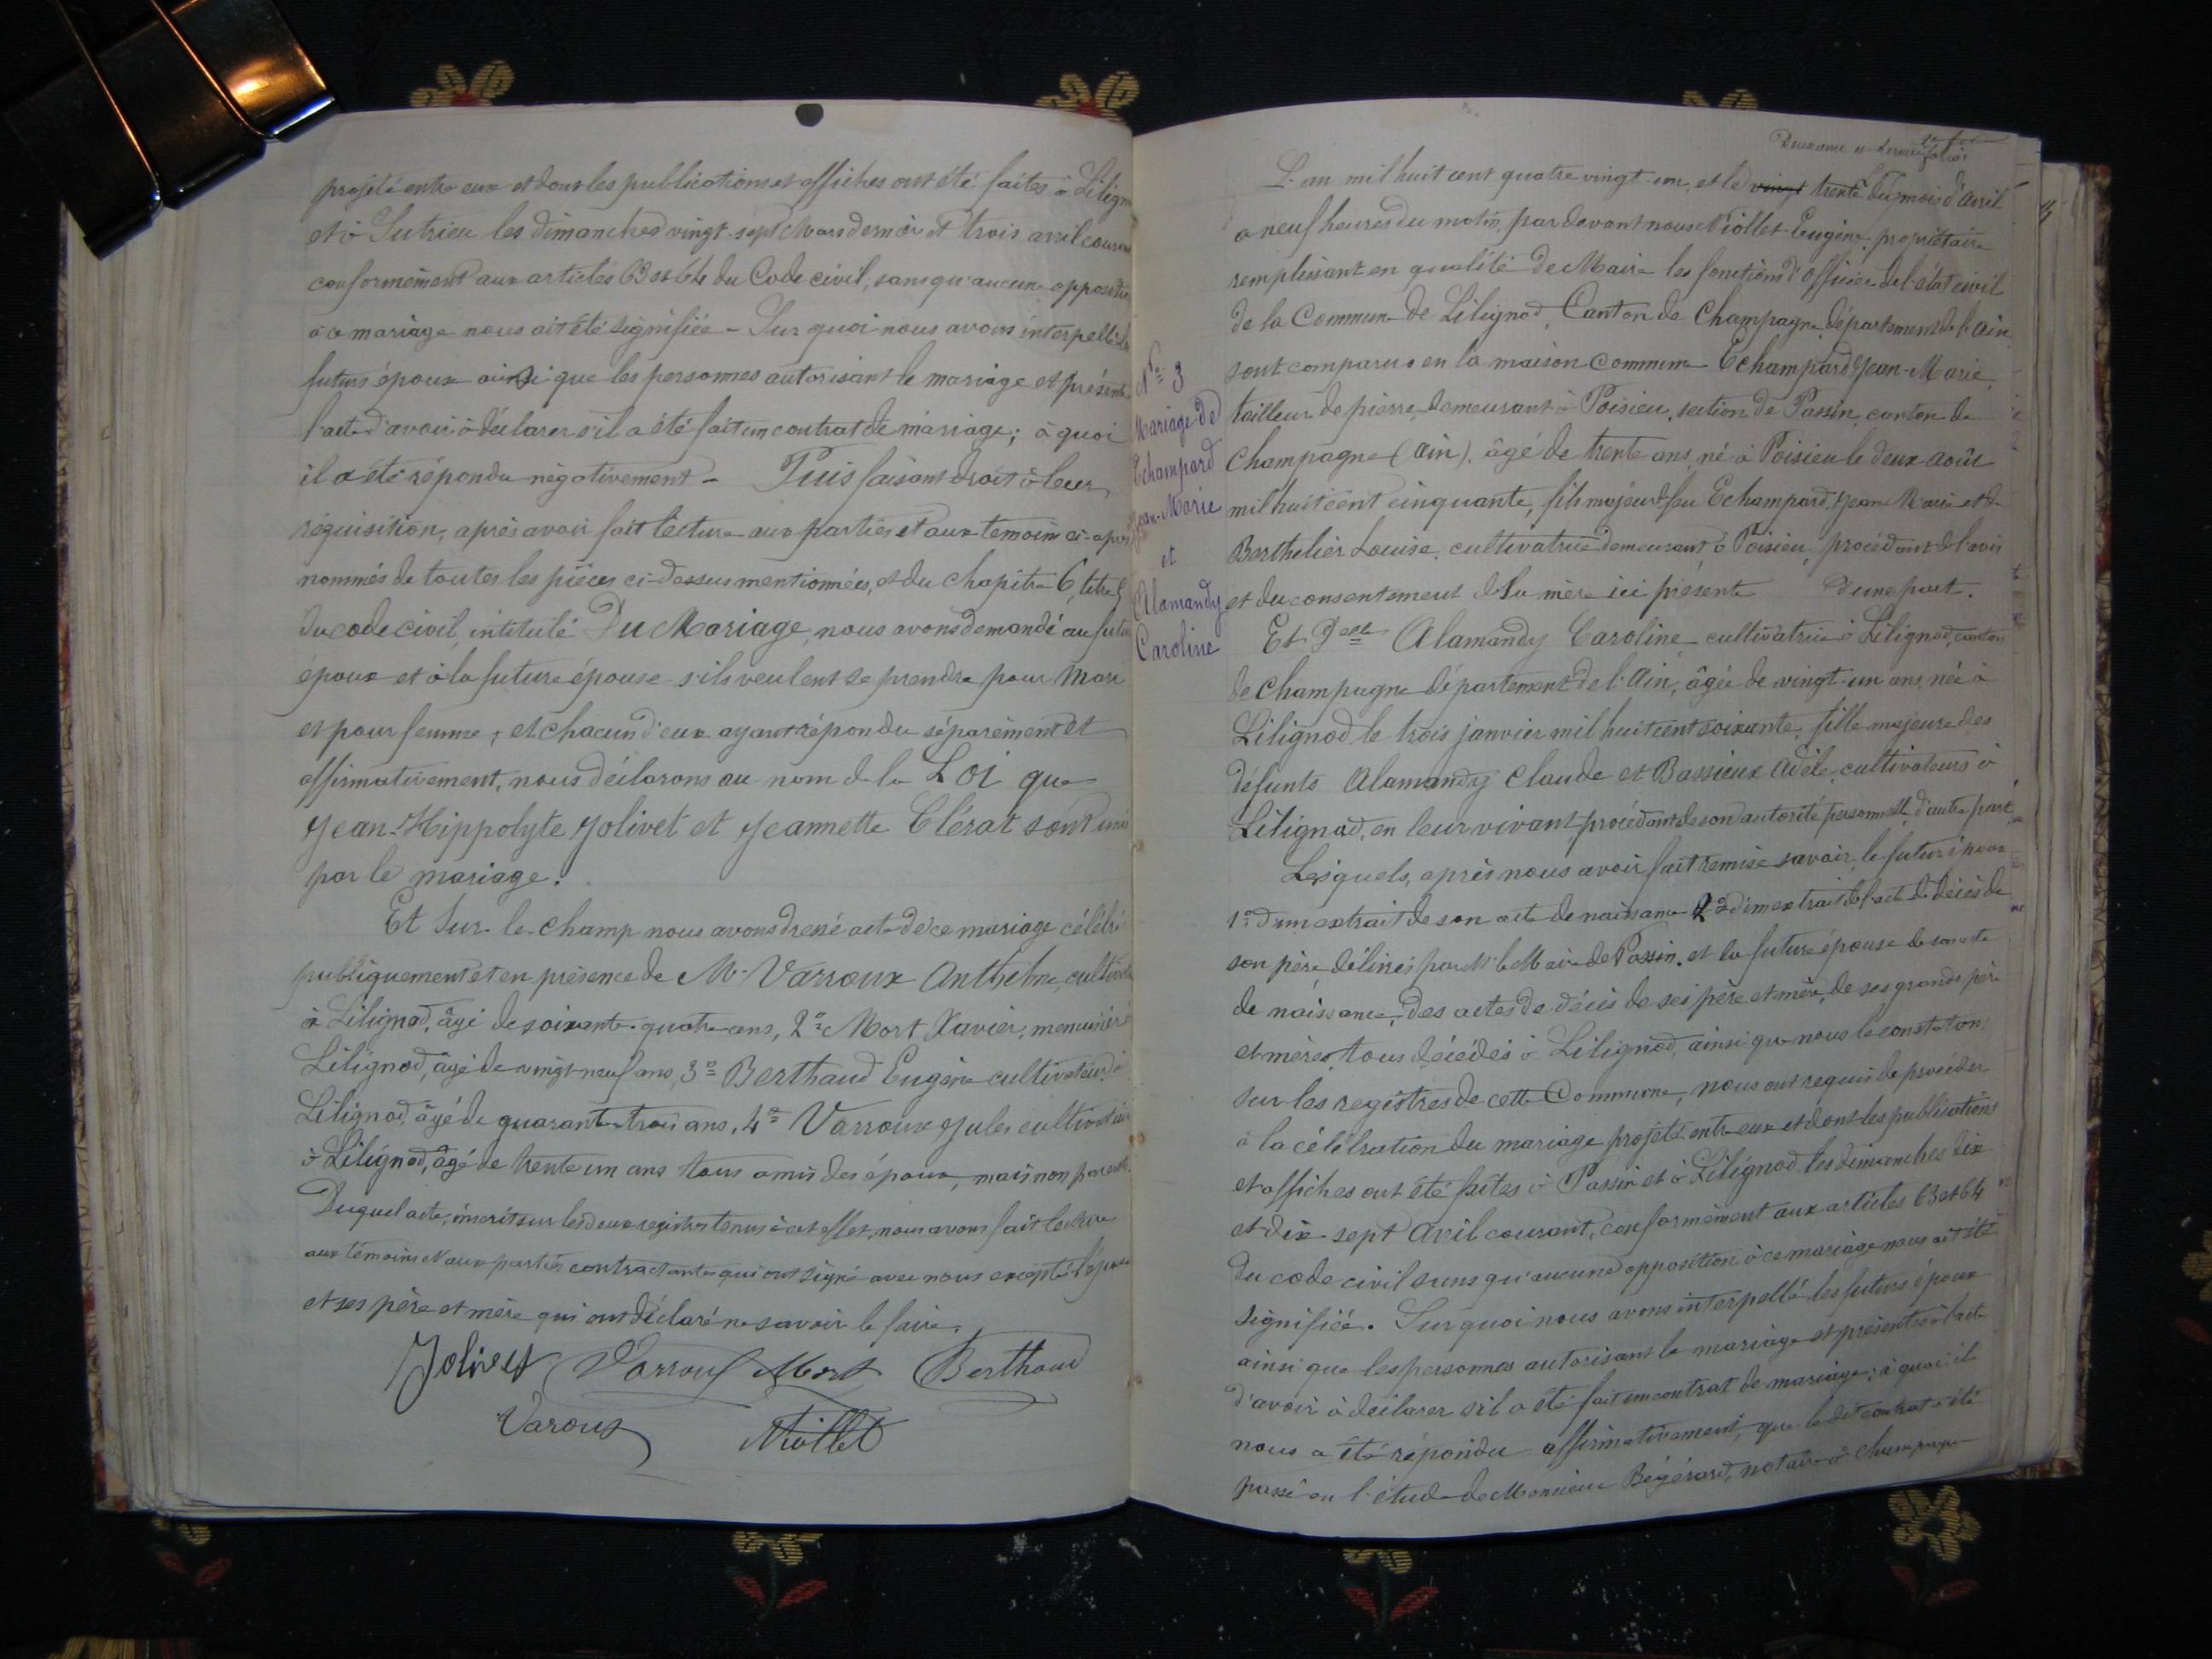 projeté entre eux et dont les publications et affiches ont été faites à Lilign
et à Sutrieu les dimanches vingt-sept Mars dernier et trois avril couran
conformément aux articles 63 et 64 du Code civil, sans qu'aucune oppositio
à ce mariage nous ait été signifiée - Sur quoi nous avons interpellé les
futurs époux ainsi que les personnes autorisant le mariage et présent
l'acte d'avoir à déclarer s'il a été fait un contrat de mariage; à quoi
il a été répondu négativement - Puis faisant droit à leur
réquisition, après avoir fait lecture aux parties et aux témoins ci-après
nommés de toutes les pièces ci-dessus mentionnées, et du chapitre 6, titre 5
du code civil, intitulé Du Mariage, nous avons demandé au futur
époux et à la future épouse s'ils veulent se prendre pour Mari
et pour femme, et chacun d'eux ayant répondu séparément et
affirmativement, nous déclarons au nom de la Loi que
Jean-Hippolyte Jolivet et Jeannette Clérat sont unis
par le mariage.
Et Sur-le-champ nous avons dressé acte de ce mariage célébré
publiquement et en présence de Mr Varroux Anthelme, cultivate
à Lilignod, âgé de soixante-quatre ans, 2º Mort Xavier, menuisier à
Lilignod, âgé de vingt-neuf ans, 3º Berthaud Eugène cultivateur à
Lilignod, âgé de quarante-trois ans, 4º Varroux Jules cultivateur
à Lilignod, âgé de trente un ans tous amis des époux, mais non parents.
Duquel acte, inscrit sur les deux registres tenus à cet effet, nous avons fait lecture
aux témoins et aux parties contractantes qui ont signé avec nous excepté l'épouse
et ses père et mère qui ont déclaré ne savoir le faire.
Jolivet Varroux Mort Berthaud
Varoux Niollet
Deuxième et dernier folio
Nº 3
Mariage de
Echampard
Jean-Marie
et
Alamandy
Caroline
L'an mil huit cent quatre vingt-un, et le vingt trente du mois d'avril
à neuf heures du matin, par devant nous Niollet Eugène, propriétaire
remplissant en qualité de Maire les fonctions d'officier de l'état civil
de la Commune de Lilignod, Canton de Champagne, département de l'Ain,
sont comparus en la maison commune Echampard Jean-Marie,
tailleur de pierre demeurant à Poisieu, section de Passin, canton de
Champagne (Ain), âgé de trente ans, né à Poisieu le deux août
mil huit cent cinquante, fils majeur de feu Echampard Jean Marie et de
Berthelier Louise, cultivatrice demeurant à Poisieu, procédant de l'avis
et du consentement de sa mère ici présente d'une part.
Et Delle Alamandy Caroline cultivatrice à Lilignod, canton
de Champagne département de l'Ain, âgée de vingt-un ans, née à
Lilignod le trois janvier mil huit cent soixante, fille majeure des
défunts Alamandy Claude et Bassieux Adèle, cultivateurs à
Lilignod, en leur vivant, procédant de son autorité personnelle, d'autre part,
Lesquels, après nous avoir fait remise savoir, le futur époux
1º d'un extrait de son acte de naissance 2º d'un extrait de l'acte de décès de
son père, délivrés par Mr le Maire de Passin, et la future épouse de son acte
de naissance, des actes de décès de ses père et mère, de ses grands père
et mères, tous décédés à Lilignod, ainsi que nous le constatons
sur les registres de cette Commune, nous ont requis de procéder
à la célébration du mariage projeté entre eux et dont les publications
et affiches ont été faites à Passin et à Lilignod les dimanches dix
et dix-sept avril courant, conformément aux articles 63 et 64
du code civil sans qu'aucune opposition à ce mariage nous ait été
signifiée. Sur quoi nous avons interpellé les futurs époux
ainsi que les personnes autorisant le mariage et présentes à l'acte
d'avoir à déclarer s'il a été fait un contrat de mariage; à quoi il
nous a été répondu affirmativement, que le dit contrat a été
passé en l'étude de Monsieur Bégérard, notaire à Champagne